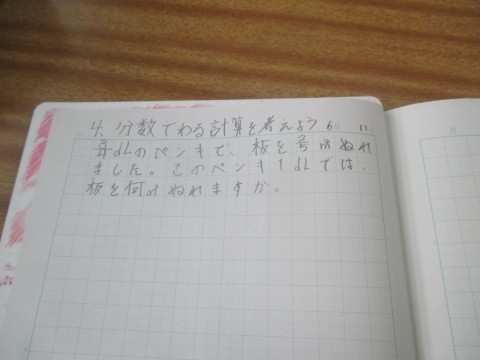 4、分数でわる計算を考えよう 6 11
3/4 dLのペンキで、板を 2/5 m²ぬれ
ました。このペンキ1dLでは、
板を何m²ぬれますか。